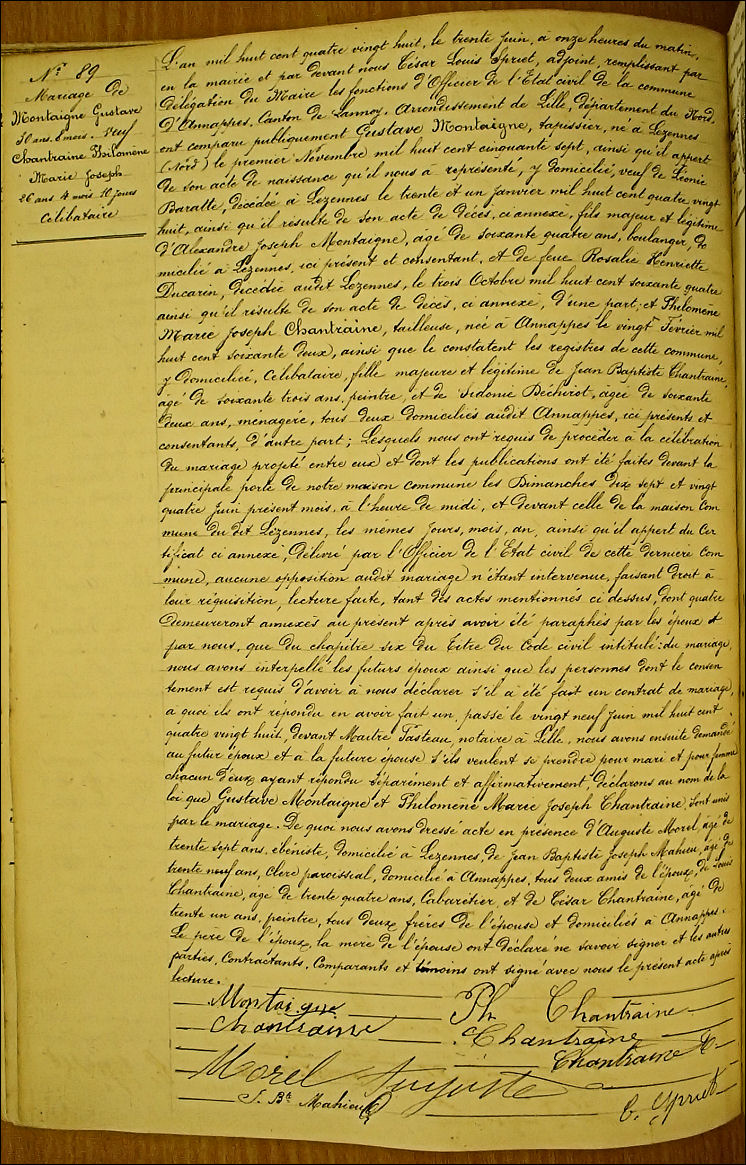 N° 89
Mariage de
Montaigne Gustave
30 ans. 8 mois. Veuf
Chantraine Philomène
Marie Joseph
26 ans 4 mois 10 jours
Célibataire
L'an mil huit cent quatre vingt huit, le trente Juin, à onze heures du matin,
en la mairie et par devant nous César Louis Spriet, adjoint, remplissant par
Délégation du Maire les fonctions d'Officier de l'Etat civil de la commune
D'Annappes, Canton de Lannoy, Arrondissement de Lille, département du Nord,
ont comparu publiquement Gustave Montaigne, tapissier, né à Lezennes
(Nord) le premier Novembre mil huit cent cinquante sept, ainsi qu'il appert
de son acte de naissance qu'il nous a représenté, y domicilié, veuf de Léonie
Baratte, décédée à Lezennes le trente et un Janvier mil huit cent quatre vingt
huit, ainsi qu'il résulte de son acte de décès, ci annexé, fils majeur et légitime
d'Alexandre Joseph Montaigne, âgé de soixante quatre ans, boulanger, do
micilié à Lezennes, ici présent et consentant, et de feue Rosalie Henriette
Ducarin, décédée audit Lezennes, le trois Octobre mil huit cent soixante quatre
ainsi qu'il résulte de son acte de décès, ci annexé, d'une part; et Philomène
Marie Joseph Chantraine, tailleuse, née à Annappes le vingt Février mil
huit cent soixante deux, ainsi que le constatent les registres de cette commune,
y domiciliée, Célibataire, fille majeure et légitime de Jean Baptiste Chantraine,
âgé de soixante trois ans, peintre, et de Sidonie Béchirot, âgée de soixante
deux ans, ménagère, tous deux domiciliés audit Annappes, ici présents et
consentants, d'autre part; Lesquels nous ont requis de procéder à la célébration
du mariage projeté entre eux et dont les publications ont été faites devant la
principale porte de notre maison commune les Dimanches dix sept et vingt
quatre Juin présent mois, à l'heure de midi, et devant celle de la maison com
mune du dit Lezennes, les mêmes jours, mois, an, ainsi qu'il appert du Cer
tificat ci annexé, délivré par l'Officier de l'Etat civil de cette dernière Com
mune, aucune opposition audit mariage n'étant intervenue, faisant droit à
leur réquisition, lecture faite, tant des actes mentionnés ci dessus, dont quatre
demeureront annexés au présent après avoir été paraphés par les époux et
par nous, que du chapitre six du Titre du Code civil intitulé: du mariage,
nous avons interpellé les futurs époux ainsi que les personnes dont le consen
tement est requis d'avoir à nous déclarer s'il a été fait un contrat de mariage,
à quoi ils ont répondu en avoir fait un, passé le vingt neuf Juin mil huit cent
quatre vingt huit, devant Maître Tasteau, notaire à Lille, nous avons ensuite demandé
au futur époux et à la future épouse s'ils veulent se prendre pour mari et pour femme
chacun d'eux ayant répondu séparément et affirmativement, déclarons au nom de la
loi que Gustave Montaigne et Philomène Marie Joseph Chantraine sont unis
par le mariage. De quoi nous avons dressé acte en présence d'Auguste Morel, âgé de
trente sept ans, ébéniste, domicilié à Lezennes, de Jean Baptiste Joseph Mahieu, âgé de
trente neuf ans, clerc paroissial, domicilié à Annappes, tous deux amis de l'époux, de Louis
Chantraine, âgé de trente quatre ans, Cabaretier, et de César Chantraine, âgé de
trente un ans, peintre, tous deux frères de l'épouse et domiciliés à Annappes.
Le père de l'époux, la mère de l'épouse ont déclaré ne savoir signer et les autres
parties, Contractants, Comparants et témoins ont signé avec nous le présent acte après
lecture.
Montaigne Ph Chantraine
Chantraine Chantraine
Chantraine C
Morel Auguste
J. Bte Mahieu C. Spriet